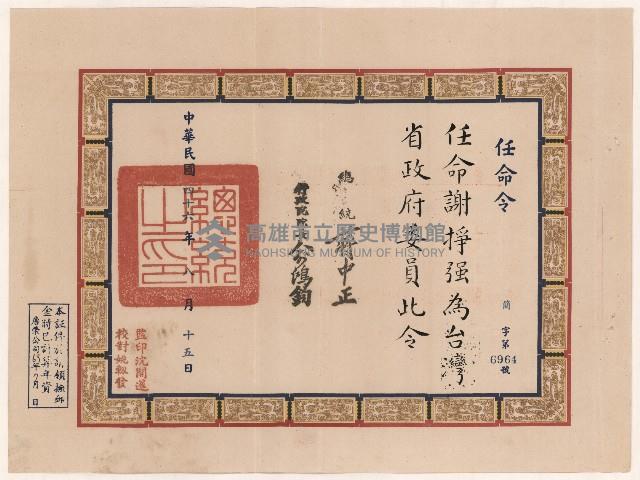 任命令
任命謝掙强為台灣
省政府委員此令
簡字第6964號
總統蔣中正
行政院院長俞鴻鈞
中華民國四十六年八月十五日
總統之印
監印沈開運
校對姚毅發
高雄市立歷史博物館
KAOHSIUNG MUSEUM OF HISTORY